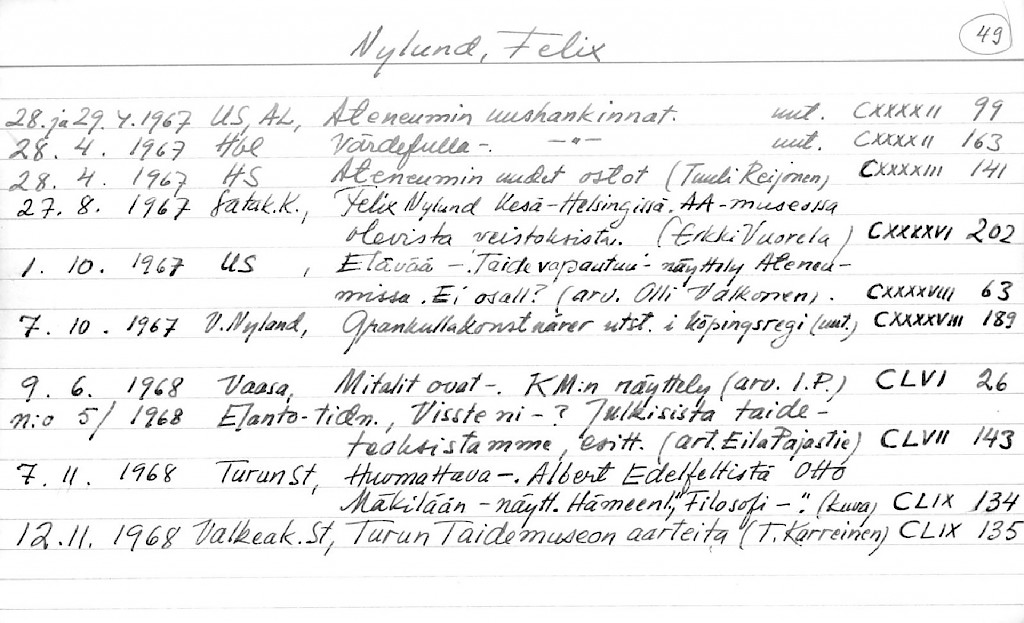 49
Nylund, Felix
28. ja 29. 4. 1967 US, AL, Ateneumin uushankinnat. uut. CXXXXII 99
28. 4. 1967 Hbl Värdefulla -. -"- uut. CXXXXII 163
28. 4. 1967 HS Ateneumin uudet ostot (Tuuli Reijonen) CXXXXIII 141
27. 8. 1967 Satak.K., Felix Nylund Kesä-Helsingissä. AA-museossa
olevista veistoksista. (Erkki Vuorela) CXXXXVI 202
1. 10. 1967 US , Elävää -. 'Taide vapautuu'- näyttely Ateneu-
missa. Ei osall? (arv. Olli Valkonen). CXXXXVIII 63
7. 10. 1967 V.Nyland, Grankullakonstnärer utst. i köpingsregi (uut.) CXXXXVIII 189
9. 6. 1968 Vaasa, Mitalit ovat -. KM:n näyttely (arv. I.P.) CLVI 26
n:o 5/ 1968 Elanto-tidn., Visste ni -? Julkisista taide-
teoksistamme, esitt. (art. Eila Pajastie) CLVII 143
7. 11. 1968 TurunSt, Huomattava -. Albert Edelfeltistä Otto
Mäkilään - näytt. Hämeenl. "Filosofi -". (kuva) CLIX 134
12. 11. 1968 Valkeak.St, Turun Taidemuseon aarteita (T. Karreinen) CLIX 135